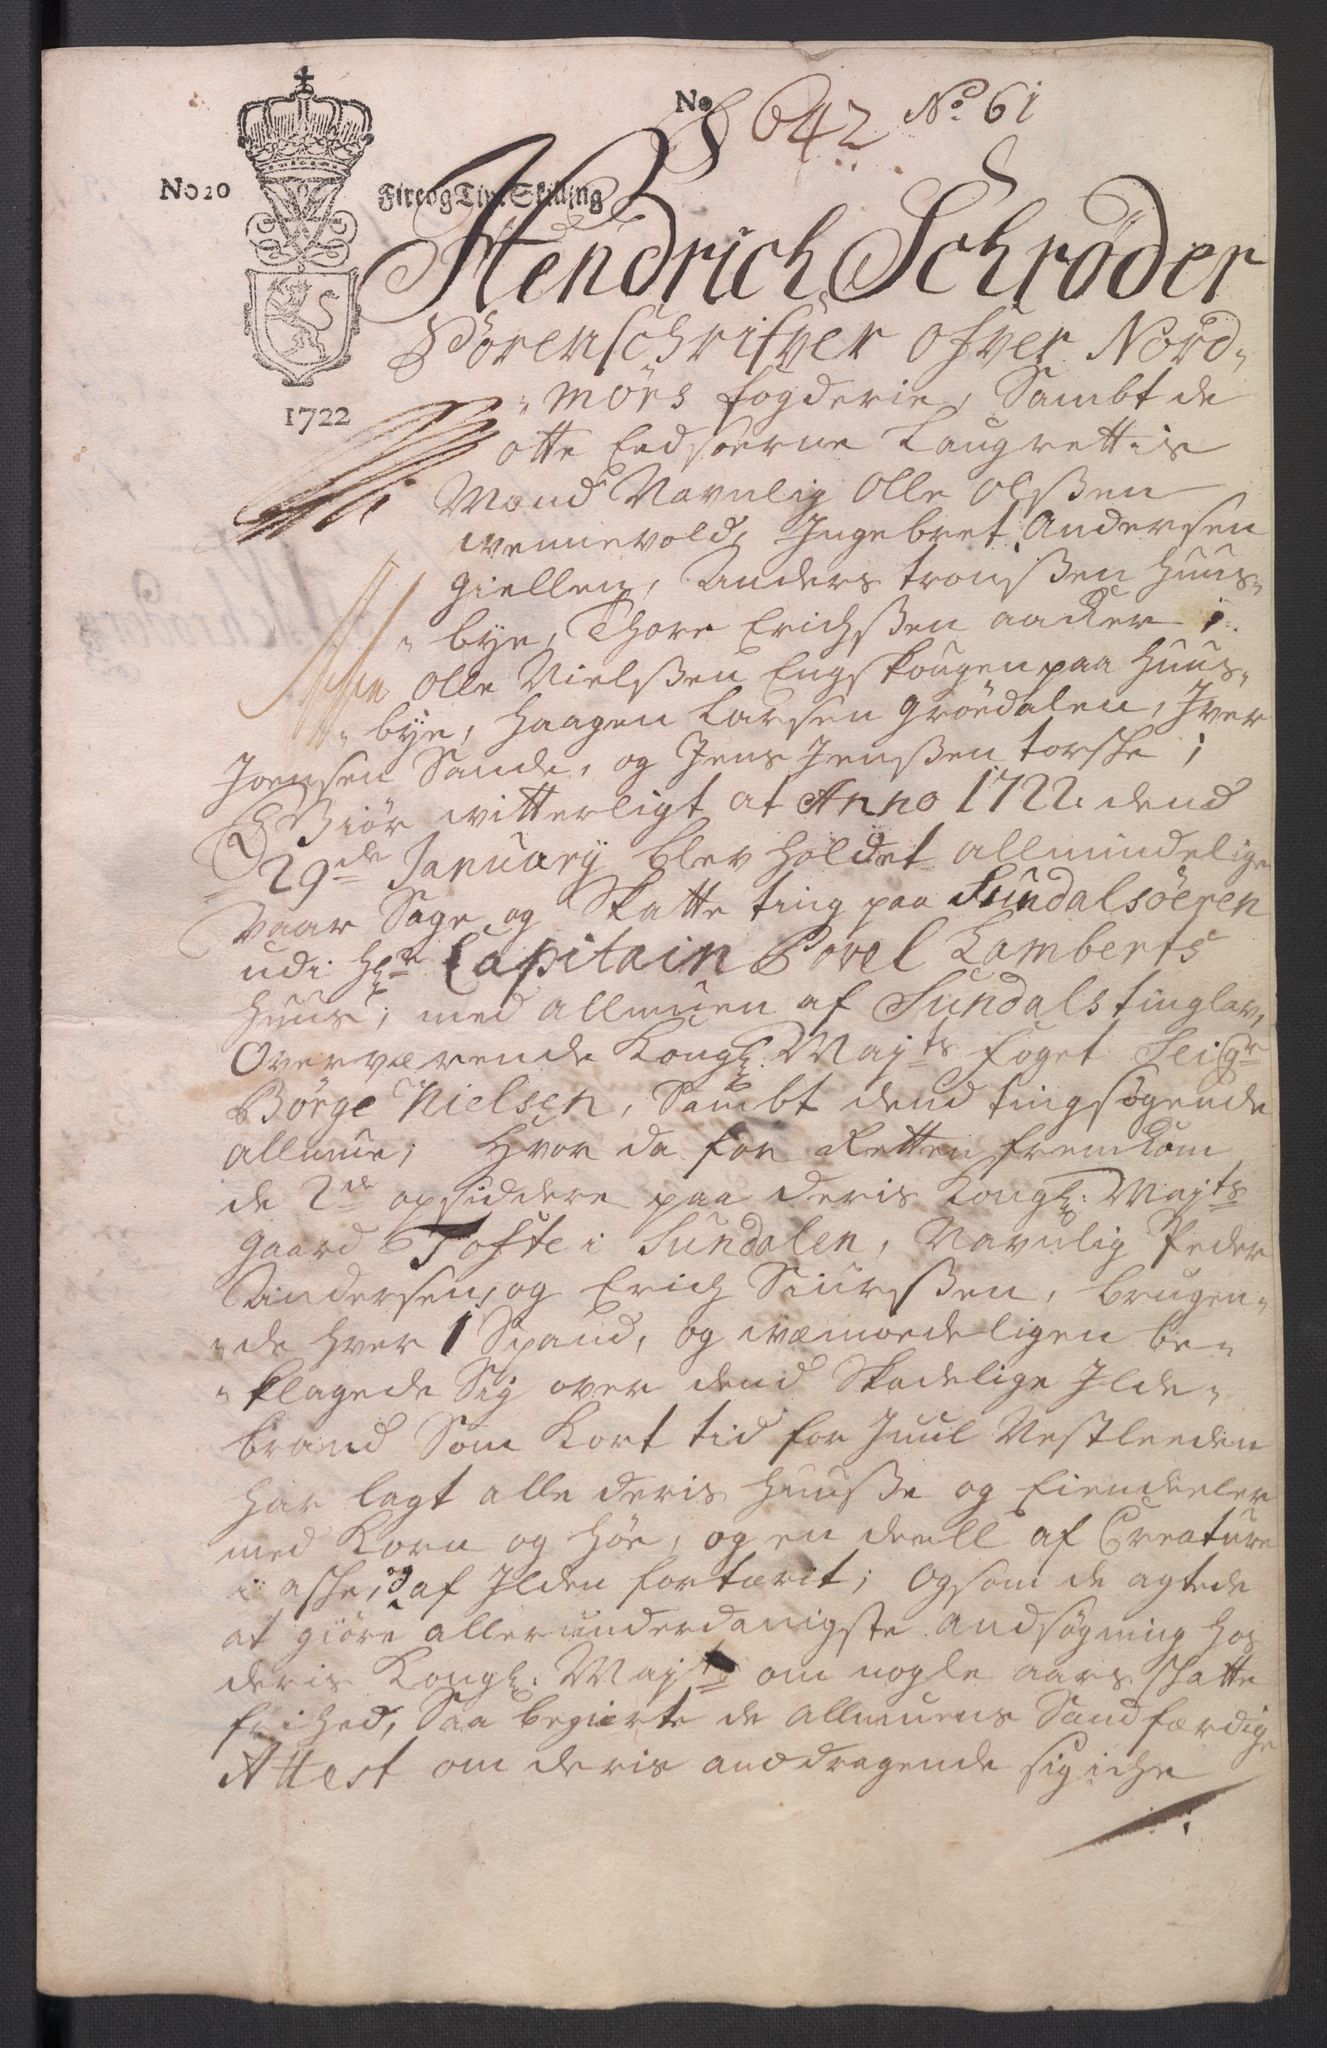 No 642 No. 61
No 20
Fire og Tive Skilling
1722
Hendrich Schröder
Sörenschrifver ofver Nord-
mörs fogderie, Sambt de
otte Eedsoerne Laugrettis
Mænd Navnlig Olle Olsßen
wennevold, Ingebret Andersen
Giellen, Anders tronßen Huus-
bye, Thore Erichsßen aacker i
Olle Nielsßen Engskougen paa Huus-
bye, Haagen Larsen Gröedalen, Iver
Joensen Sande, og Jens Jenßen torske;
Giör witterligt at Anno 1722. dend
29de January blev holdet allmindelige
Vaar Sage og Skatte ting paa Sundalsöeren
udi Hr Capitain Povel Lamberts
Huus; med allmuen af Sundals tinglav,
Overværende Kongl: Mayts foget Seigr
Börge Nielsen, Sambt dend tingsögende
allmue; Hvor da for Retten fremkom
de 2de opsiddere paa deris Kongl: Mayts
gaard Tofte i Sundalen, Navnlig Peder
Andersen, og Erich Siursßen, brugen-
de hver 1 Spand, og wæmoedeligen be-
klagede Sig over dend Skadelige Ilde-
brand Som Kort tid for Juul Nestleeden
har lagt alle deris Huuße og Eiendeeler
med Korn og Höe, og en deell af Creature
i aske, og af Ilden fortærit; Og som de agtede
at giöre allerunderdanigste andsögning hos
deris Kongl: Mayts om nogle aars skatte
frihed, Saa begierte de Allmuens Sandfærdige
Attest om deris andragende sig iche